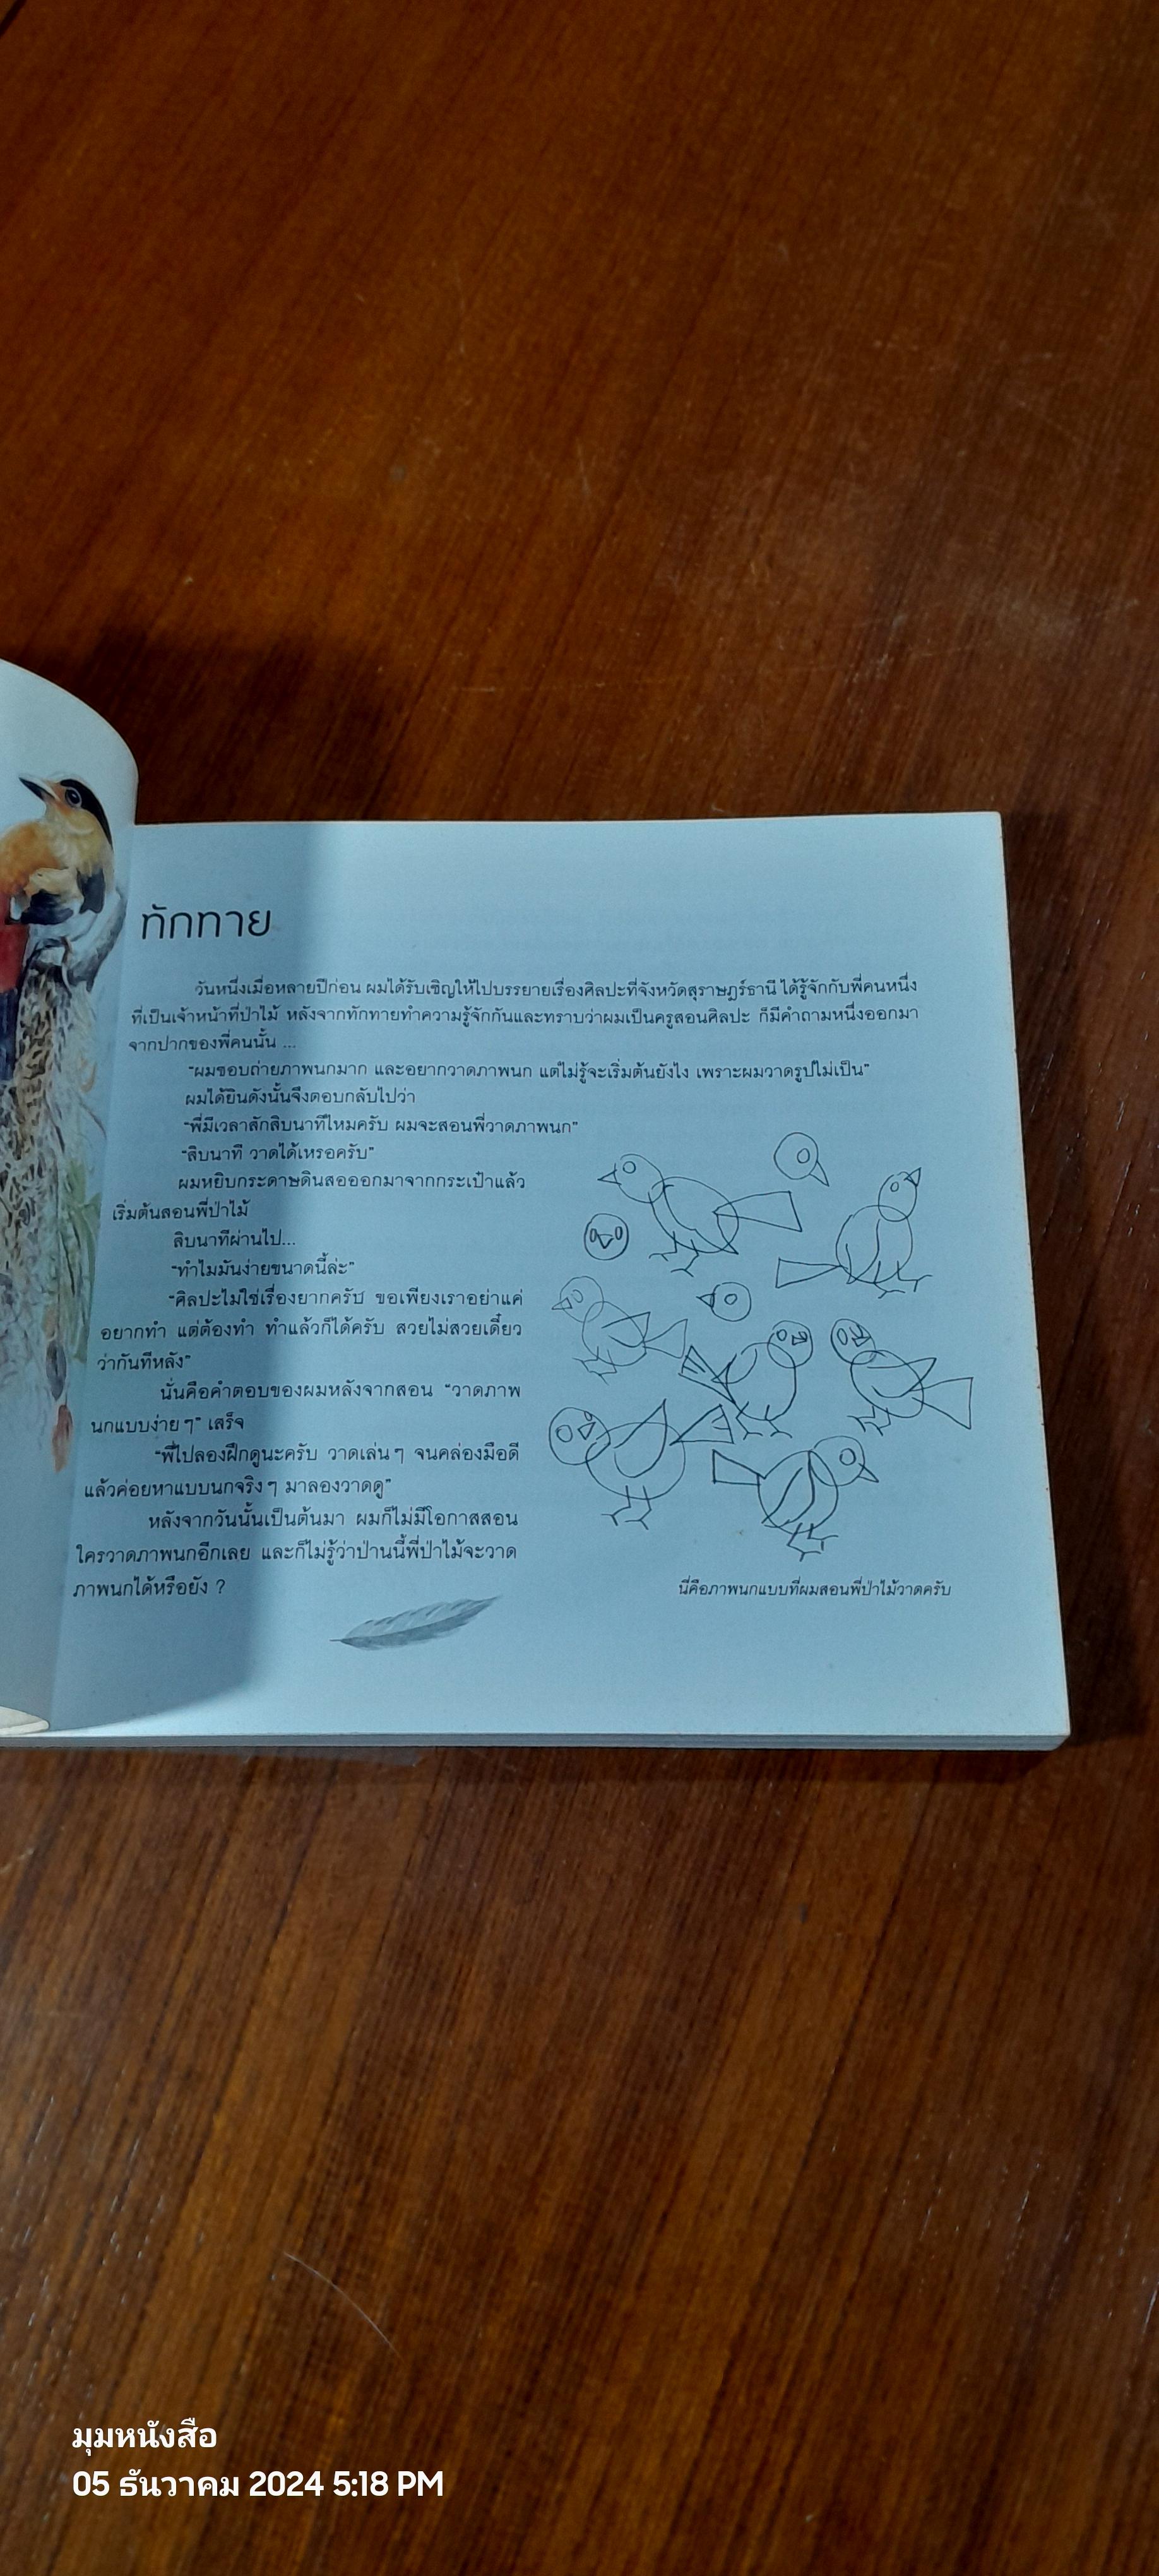 ทักทาย
วันหนึ่งเมื่อหลายปีก่อน ผมได้รับเชิญให้ไปบรรยายเรื่องศิลปะที่จังหวัดสุราษฎร์ธานี ได้รู้จักกับพี่คนหนึ่ง
ที่เป็นเจ้าหน้าที่ป่าไม้ หลังจากทักทายทำความรู้จักกันและทราบว่าผมเป็นครูสอนศิลปะ ก็มีคำถามหนึ่งออกมา
จากปากของพี่คนนั้น ...
"ผมชอบถ่ายภาพนกมาก และอยากวาดภาพนก แต่ไม่รู้จะเริ่มต้นยังไง เพราะผมวาดรูปไม่เป็น"
ผมได้ยินดังนั้นจึงตอบกลับไปว่า
"พี่มีเวลาสักสิบนาทีไหมครับ ผมจะสอนพี่วาดภาพนก"
"สิบนาที วาดได้เหรอครับ"
ผมหยิบกระดาษดินสอออกมาจากกระเป๋าแล้ว
เริ่มต้นสอนพี่ป่าไม้
สิบนาทีผ่านไป...
"ทำไมมันง่ายขนาดนี้ล่ะ"
"ศิลปะไม่ใช่เรื่องยากครับ ขอเพียงเราอย่าแค่
อยากทำ แต่ต้องทำ ทำแล้วก็ได้ครับ สวยไม่สวยเดี๋ยว
ว่ากันทีหลัง"
นั่นคือคำตอบของผมหลังจากสอน "วาดภาพ
นกแบบง่าย ๆ" เสร็จ
"พี่ไปลองฝึกดูนะครับ วาดเล่น ๆ จนคล่องมือดี
แล้วค่อยหาแบบนกจริง ๆ มาลองวาดดู"
หลังจากวันนั้นเป็นต้นมา ผมก็ไม่มีโอกาสสอน
ใครวาดภาพนกอีกเลย และก็ไม่รู้ว่าป่านนี้พี่ป่าไม้จะวาด
ภาพนกได้หรือยัง ?
นี่คือภาพนกแบบที่ผมสอนพี่ป่าไม้วาดครับ
มุมหนังสือ
05 ธันวาคม 2024 5:18 PM